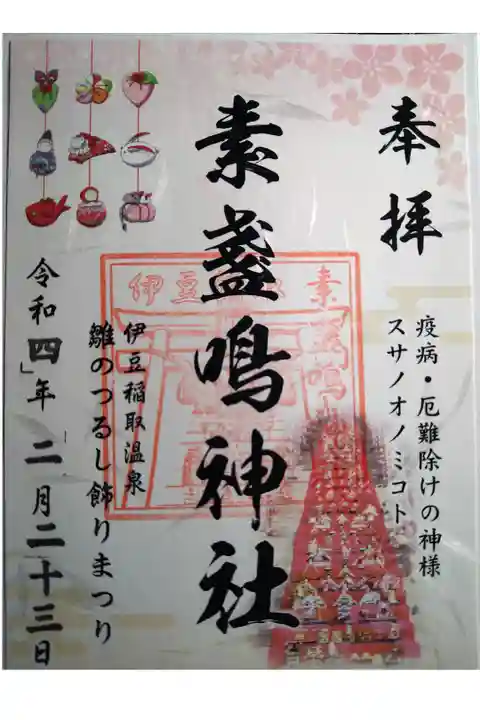 奉拝
疫病・厄難除けの神様
スサノオノミコト
素盞鳴神社
伊豆稲取温泉
雛のつるし飾りまつり
令和四年 二月二十三日